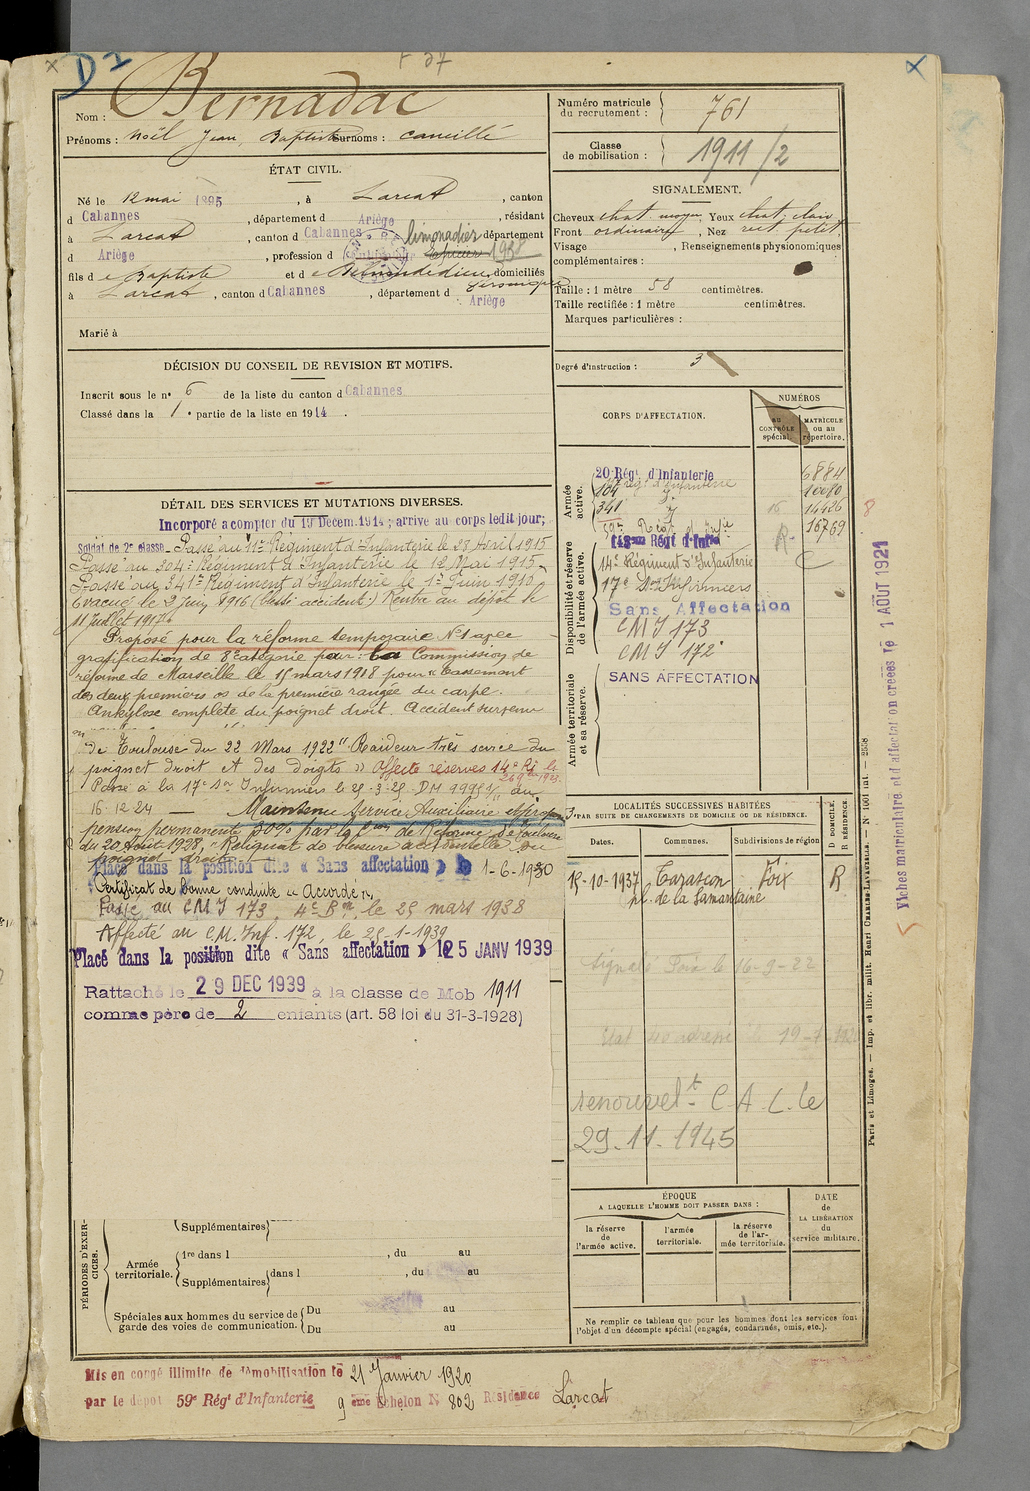 D 1
Nom : Bernadac
Prénoms : Noël Jean Baptiste Surnoms : Camille
Numéro matricule du recrutement : 761
Classe de mobilisation : 1911/2
ÉTAT CIVIL.
Né le 12 mai 1895, à Larcat, canton
d Cabannes, département d Ariège, résidant
à Larcat, canton d Cabannes, département
d Ariège, profession d limonadier 1938
fils d e Baptiste et d e domiciliés
à Larcat, canton d Cabannes, département d Ariège
Marié à
SIGNALEMENT.
Cheveux chat. moyen, Yeux chat. clair
Front ordinaire, Nez rect. petit
Visage , Renseignements physionomiques
complémentaires :
Taille : 1 mètre 58 centimètres.
Taille rectifiée : 1 mètre centimètres.
Marques particulières :
Degré d'instruction : 3
DÉCISION DU CONSEIL DE REVISION ET MOTIFS.
Inscrit sous le nº 6 de la liste du canton d Cabannes
Classé dans la 1e partie de la liste en 1914.
DÉTAIL DES SERVICES ET MUTATIONS DIVERSES.
Incorporé a compter du 19 Décem. 1914; arrive au corps ledit jour;
Soldat de 2e classe - Passé au Régiment d'Infanterie le 28 Avril 1915
Passé au 204e Régiment d'Infanterie le 12 Mai 1915
Passé au 341e Régiment d'Infanterie le 1er Juin 1916
Evacué le 2 Juin 1916 (blessé accident.) Rentré au dépôt le
11 Juillet 1917
Proposé pour la réforme temporaire Nº1 avec
gratification de 8e catégorie par la Commission de
réforme de Marseille le 15 mars 1918 pour « tassement
des deux premiers os de la première rangée du carpe.
Ankylose complète du poignet droit. Accident survenu
de Toulouse du 22 Mars 1922 " Raideur très serrée du
poignet droit et des doigts » Affecté réserves 14e RI le
Passé à la 17e Son Infirmiers le 25-3-25 - DM 9995 1/7 du
16-12-24 — Maintenu Service Auxiliaire et
pension permanente 30% par la Con de Réforme de Toulouse
du 20 Août 1928, "Reliquat de blessure accidentelle du
poignet droit" —
Placé dans la position dite « Sans affectation » le 1-6-1930
Certificat de bonne conduite « Accordé ».
Passé au CMI 173, 4e Bn, le 25 mars 1938
Affecté au C.M. Inf. 172, le 25-1-1939
Placé dans la position dite « Sans affectation » le 25 JANV 1939
Rattaché le 29 DEC 1939 à la classe de Mob 1911
comme père de 2 enfants (art. 58 loi du 31-3-1928)
CORPS D'AFFECTATION.
NUMÉROS
AU CONTRÔLE spécial.
MATRICULE ou au répertoire.
Armée active.
20 Régt d'Infanterie 6884
10080
341 16 14426
59e Régt d'Infie R 16769
Disponibilité et réserve de l'armée active.
143me Régt d'Infie
14e Régiment d'Infanterie C
17e Son Infirmiers
Sans Affectation
CMI 173
CMI 172
Armée territoriale et sa réserve.
SANS AFFECTATION
LOCALITÉS SUCCESSIVES HABITÉES
PAR SUITE DE CHANGEMENTS DE DOMICILE OU DE RÉSIDENCE.
Dates. Communes. Subdivisions de région. D DOMICILE. R RÉSIDENCE.
15-10-1937 Tarascon Foix R
pl. de la Samaritaine
Signalé Foix le 16-9-22
renouvelt C.A.C. le
29-11-1945
ÉPOQUE
A LAQUELLE L'HOMME DOIT PASSER DANS :
la réserve de l'armée active.
l'armée territoriale.
la réserve de l'armée territoriale.
DATE de LA LIBÉRATION du service militaire.
Ne remplir ce tableau que pour les hommes dont les services font
l'objet d'un décompte spécial (engagés, condamnés, omis, etc.).
PÉRIODES D'EXERCICES.
Supplémentaires
Armée territoriale.
1re dans l , du au
Supplémentaires dans l , du au
Spéciales aux hommes du service de garde des voies de communication.
Du au
Du au
Mis en congé illimité de démobilisation le 21 Janvier 1920
par le dépôt 59e Régt d'Infanterie 9 ème Echelon N 802 Résidence Larcat
Fiches matriculaire et d'affectation créées le 1 AOUT 1921
Paris et Limoges. — Imp. et libr. milit. Henri CHARLES-LAVAUZELLE. — Nº 1001 int. — 2538